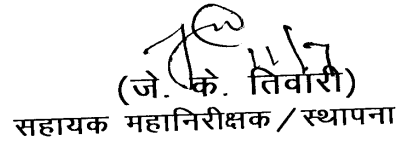 11/7
(जे. के. तिवारी)
सहायक महानिरीक्षक / स्थापना